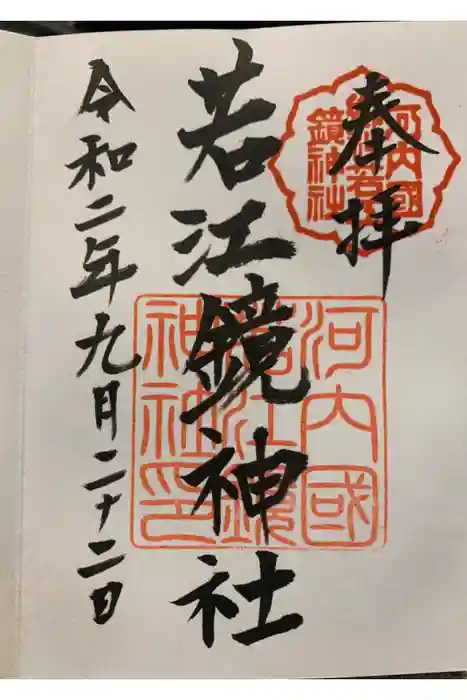 奉拝
河内國
総若江
鏡神社
若江鏡神社
河内國
若江鏡
神社神印
令和二年九月二十二日